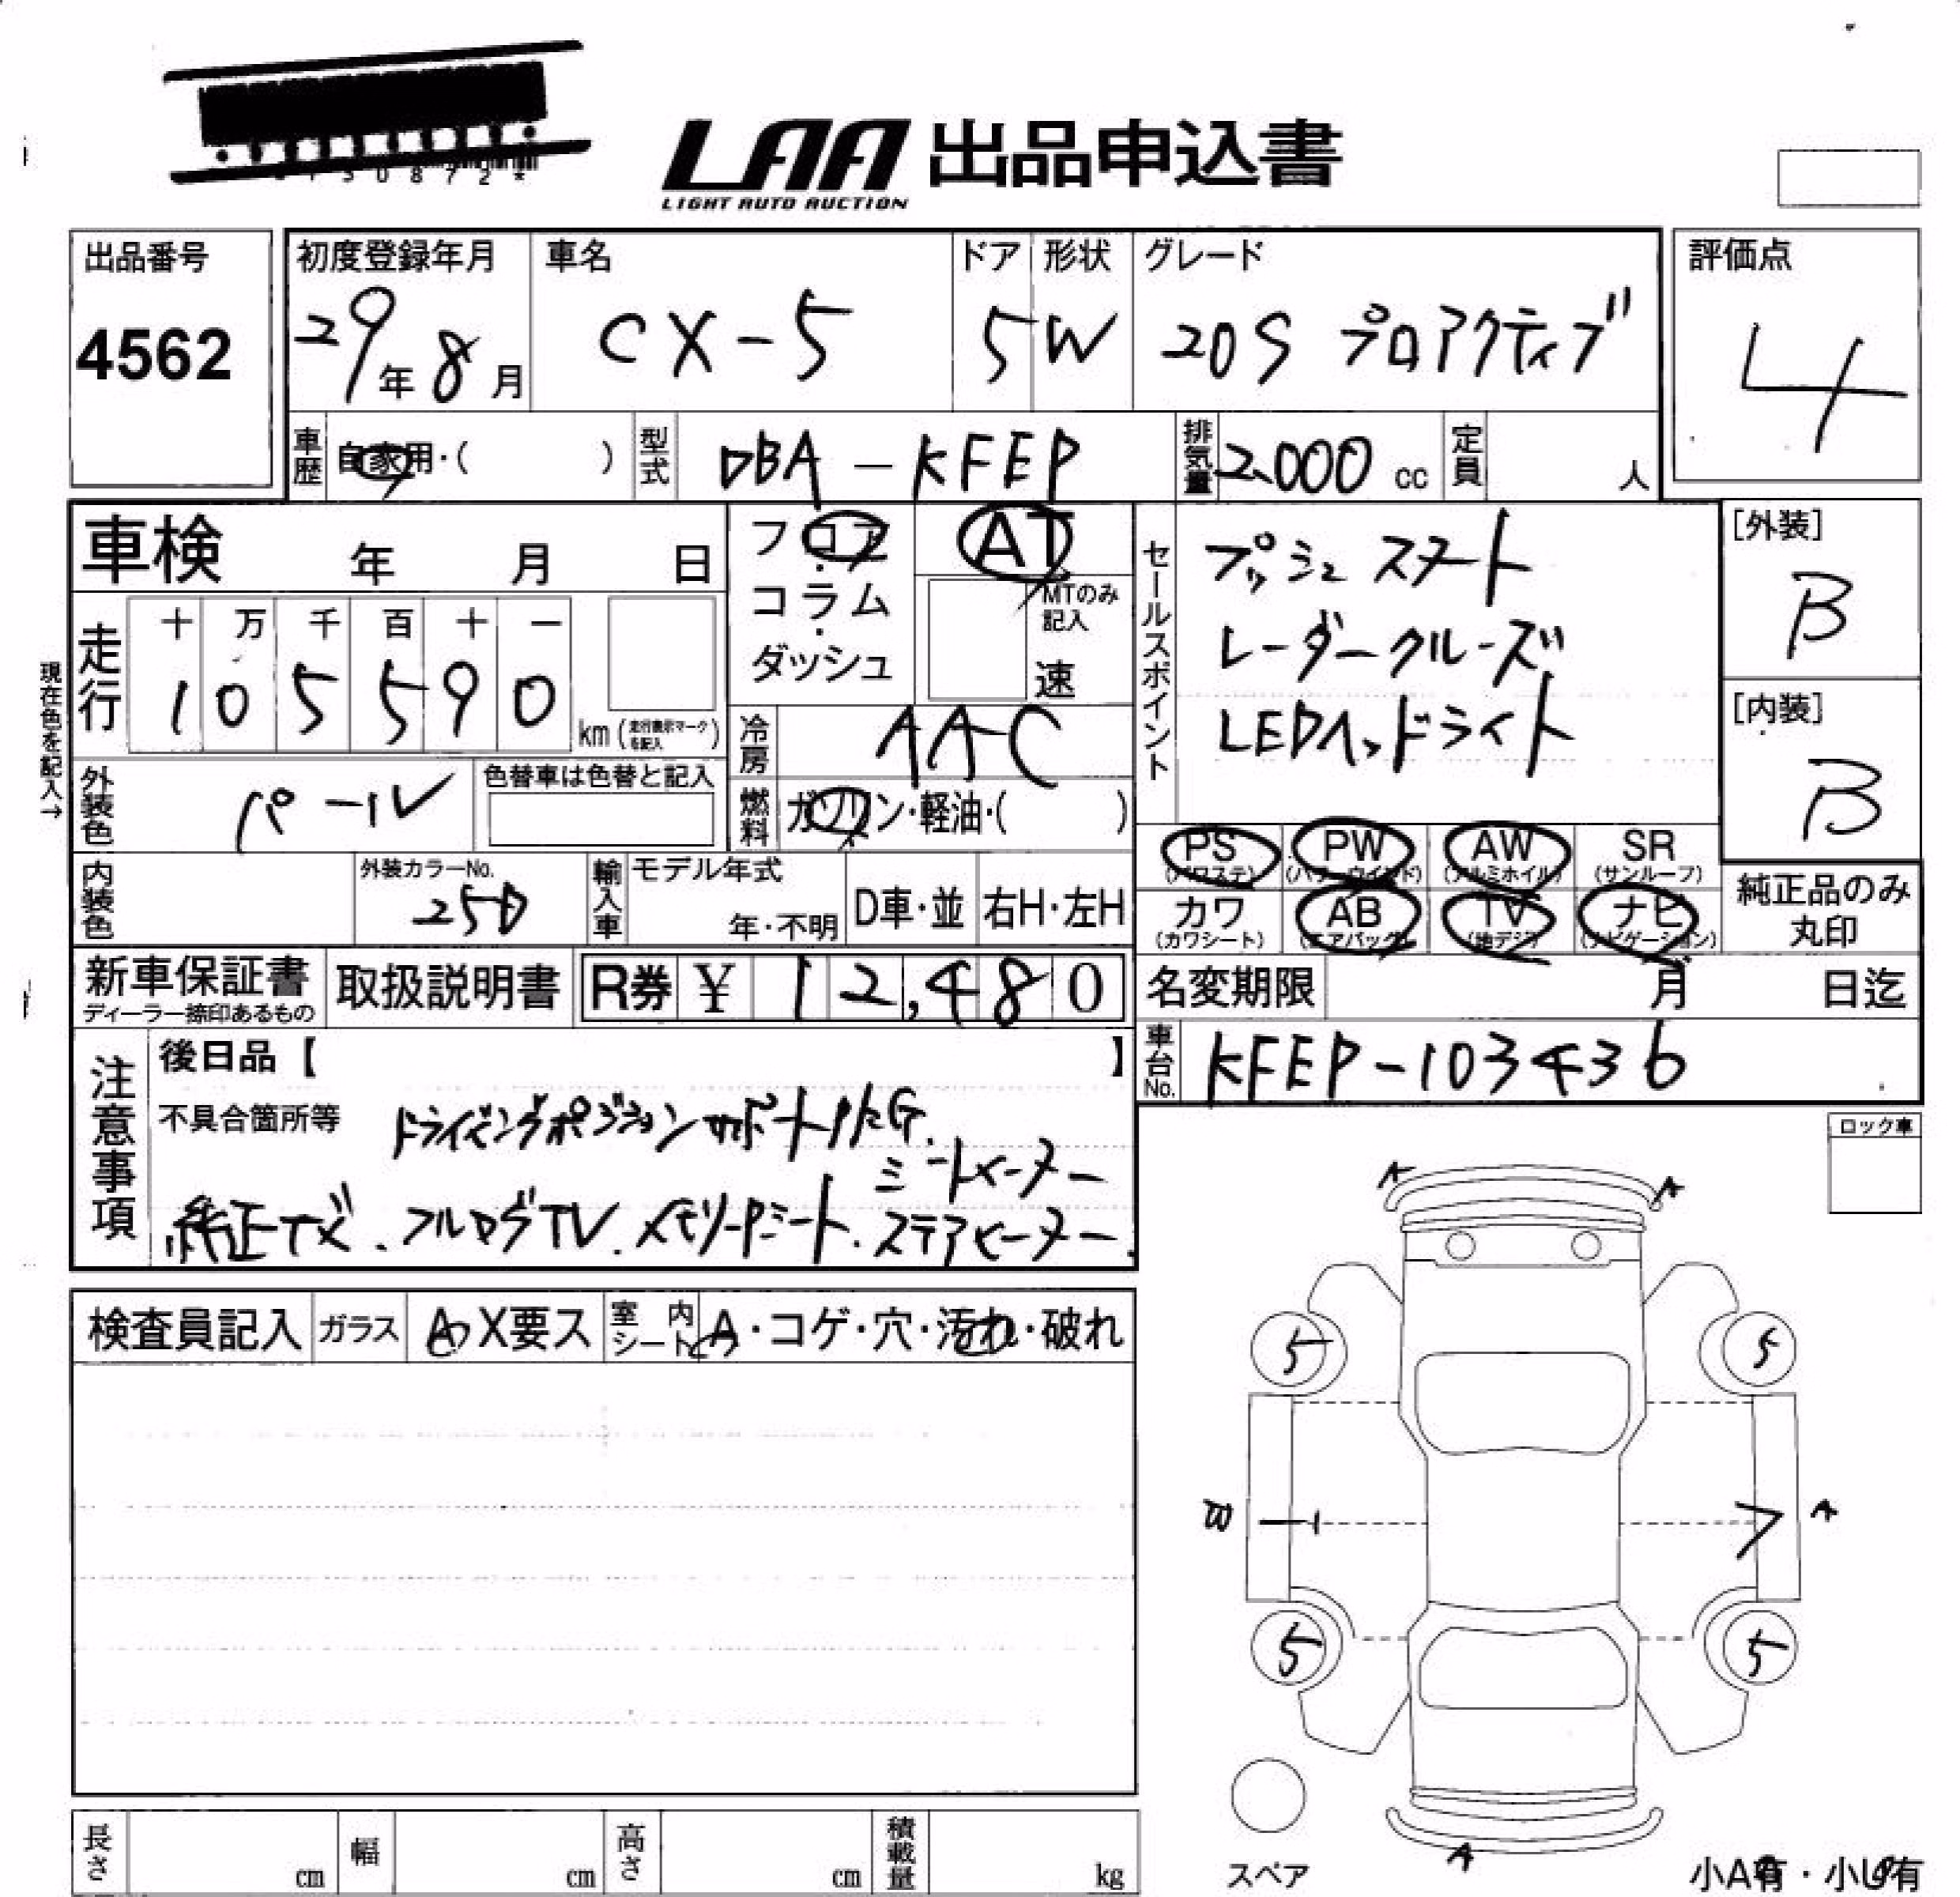 30872*
LAA 出品申込書
LIGHT AUTO AUCTION
出品番号 初度登録年月 車名 ドア 形状 グレード 評価点
4562 29年 8月 CX-5 5 W 20S プロアクティブ 4
車歴 自家用・( ) 型式 DBA-KFEP 排気量 2,000 cc 定員 人
車検 年 月 日
フロア・コラム・ダッシュ
AT
MTのみ記入
速
走行 十 万 千 百 十 一
1 0 5 5 9 0 km (走行表示マークを記入)
現在色を記入→
セールスポイント
プッシュスタート
レーダークルーズ
LEDヘッドライト
[外装]
B
[内装]
B
冷房 AAC
燃料 ガソリン・軽油・( )
外装色 パール 色替車は色替と記入
内装色 外装カラーNo. 25D 輸入車 モデル年式 年・不明 D車・並 右H・左H
PS (パワステ) PW (パワーウインド) AW (アルミホイル) SR (サンルーフ)
カワ (カワシート) AB (エアバッグ) TV (地デジ) ナビ (ナビゲーション)
純正品のみ
丸印
新車保証書 取扱説明書 R券 ¥ 12,480
ディーラー捺印あるもの
名変期限 月 日迄
車台No. KFEP-103436
注意事項
後日品【 】
不具合箇所等 ドライビングポジションサポートPKG.
シートヒーター
純正ナビ、フルセグTV、メモリーPシート、ステアヒーター、
ロック車
検査員記入 ガラス A X要ス 室内シート A・コゲ・穴・汚れ・破れ
A A
5 5
B A
5 5
A
スペア
小A有・小U有
長さ cm 幅 cm 高さ cm 積載量 kg